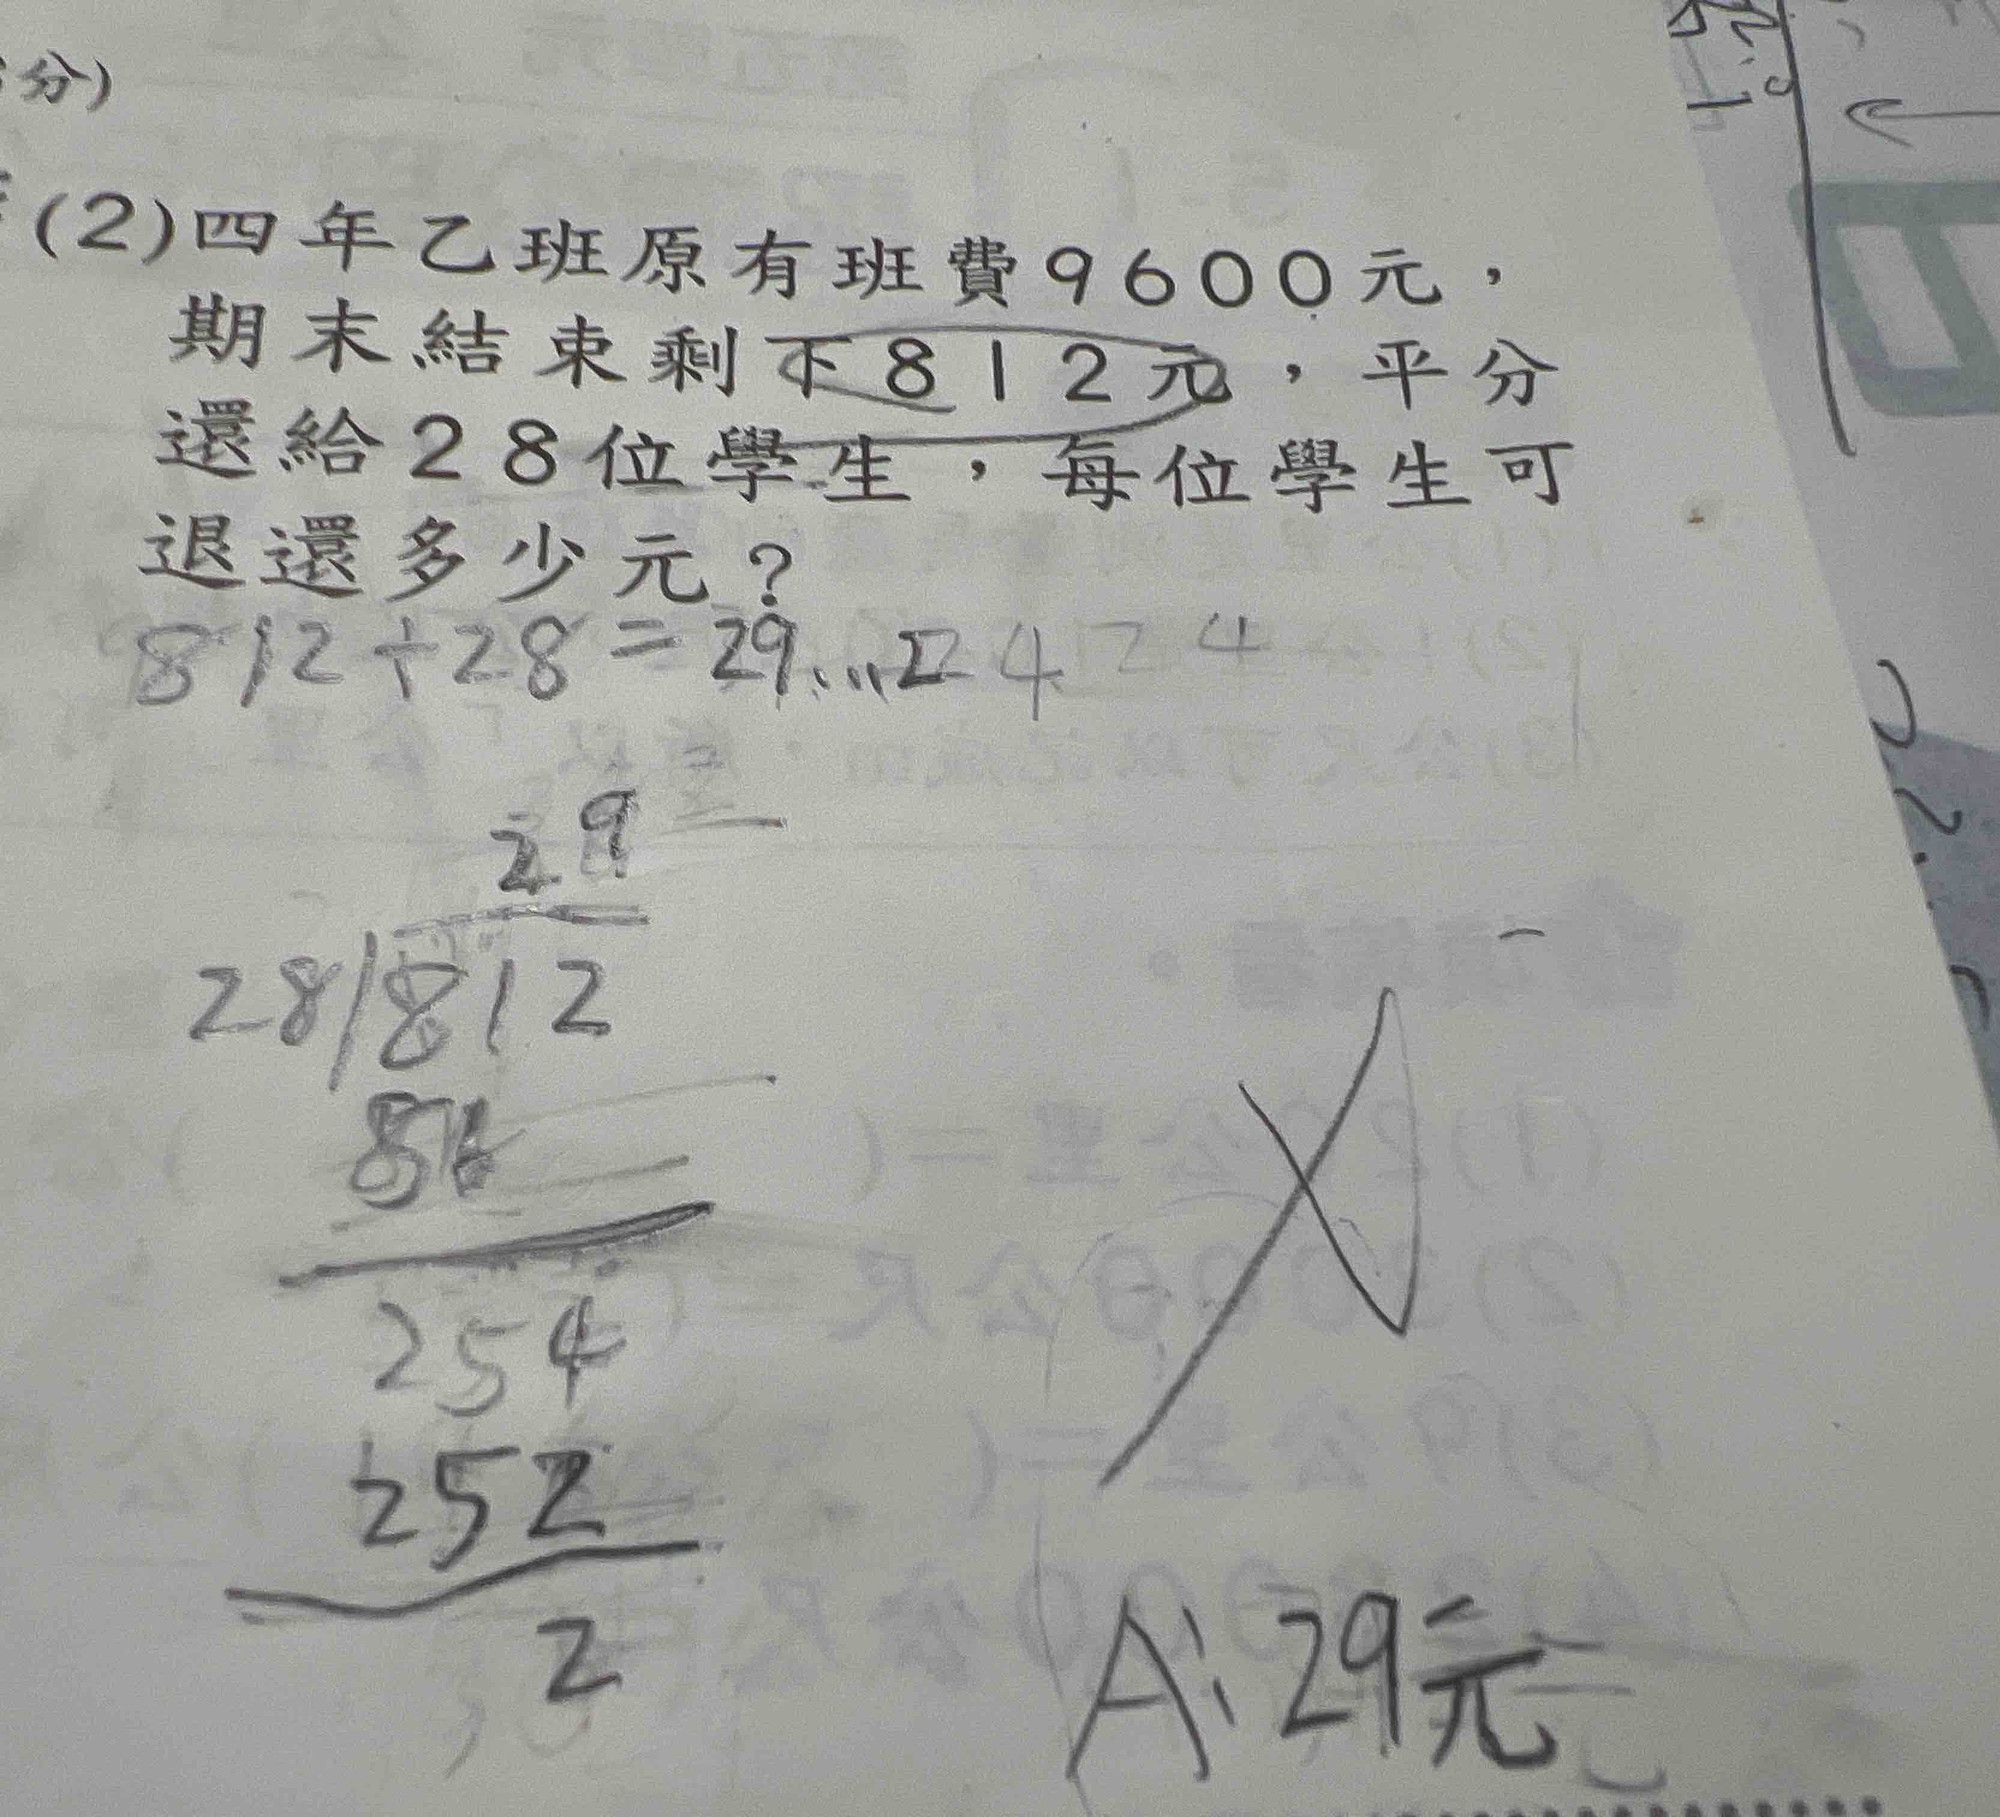 分)
(2)四年乙班原有班費9600元，
期末結束剩下812元，平分
還給28位學生，每位學生可
退還多少元？
812÷28=29...
29
28/812
254
252
2
A:29元